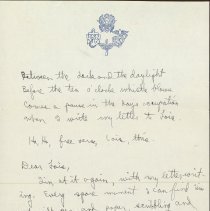 Between the dark and the daylight
Before the ten o'clock whistle blows
Comes a pause in the days occupation
When I write my letter to Lois.
Ha Ha, free verse, Lois, this.
Dear Lois,
I'm at it again, with my letter writ-
ing. Every spare minute I can find
paper, scribbling and